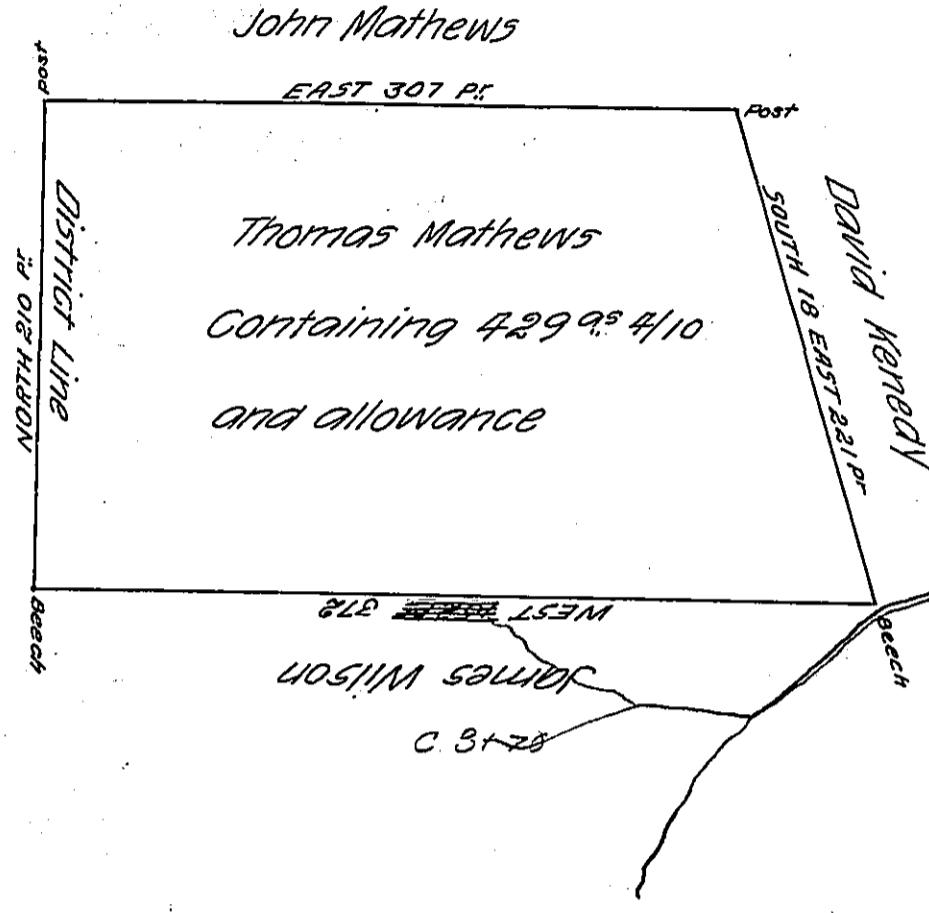 John Mathews
post
EAST 307 Pr.
Post
District Line
NORTH 210 pr
Thomas Mathews
Containing 429 as 4/10
and allowance
SOUTH 18 EAST 221 pr
David Kenedy
Beech
WEST 372
Beech
James Wilson